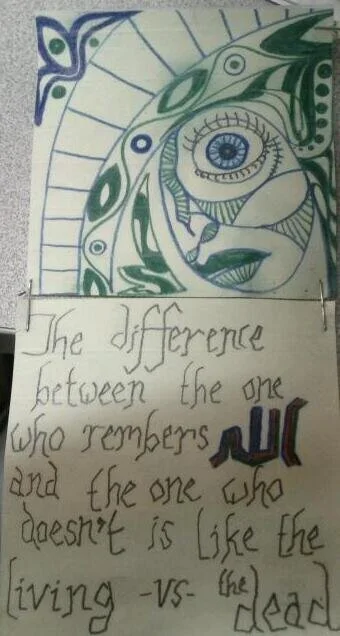 The difference
between the one
who rembers الله
and the one who
doesn't is like the
living -vs- the dead